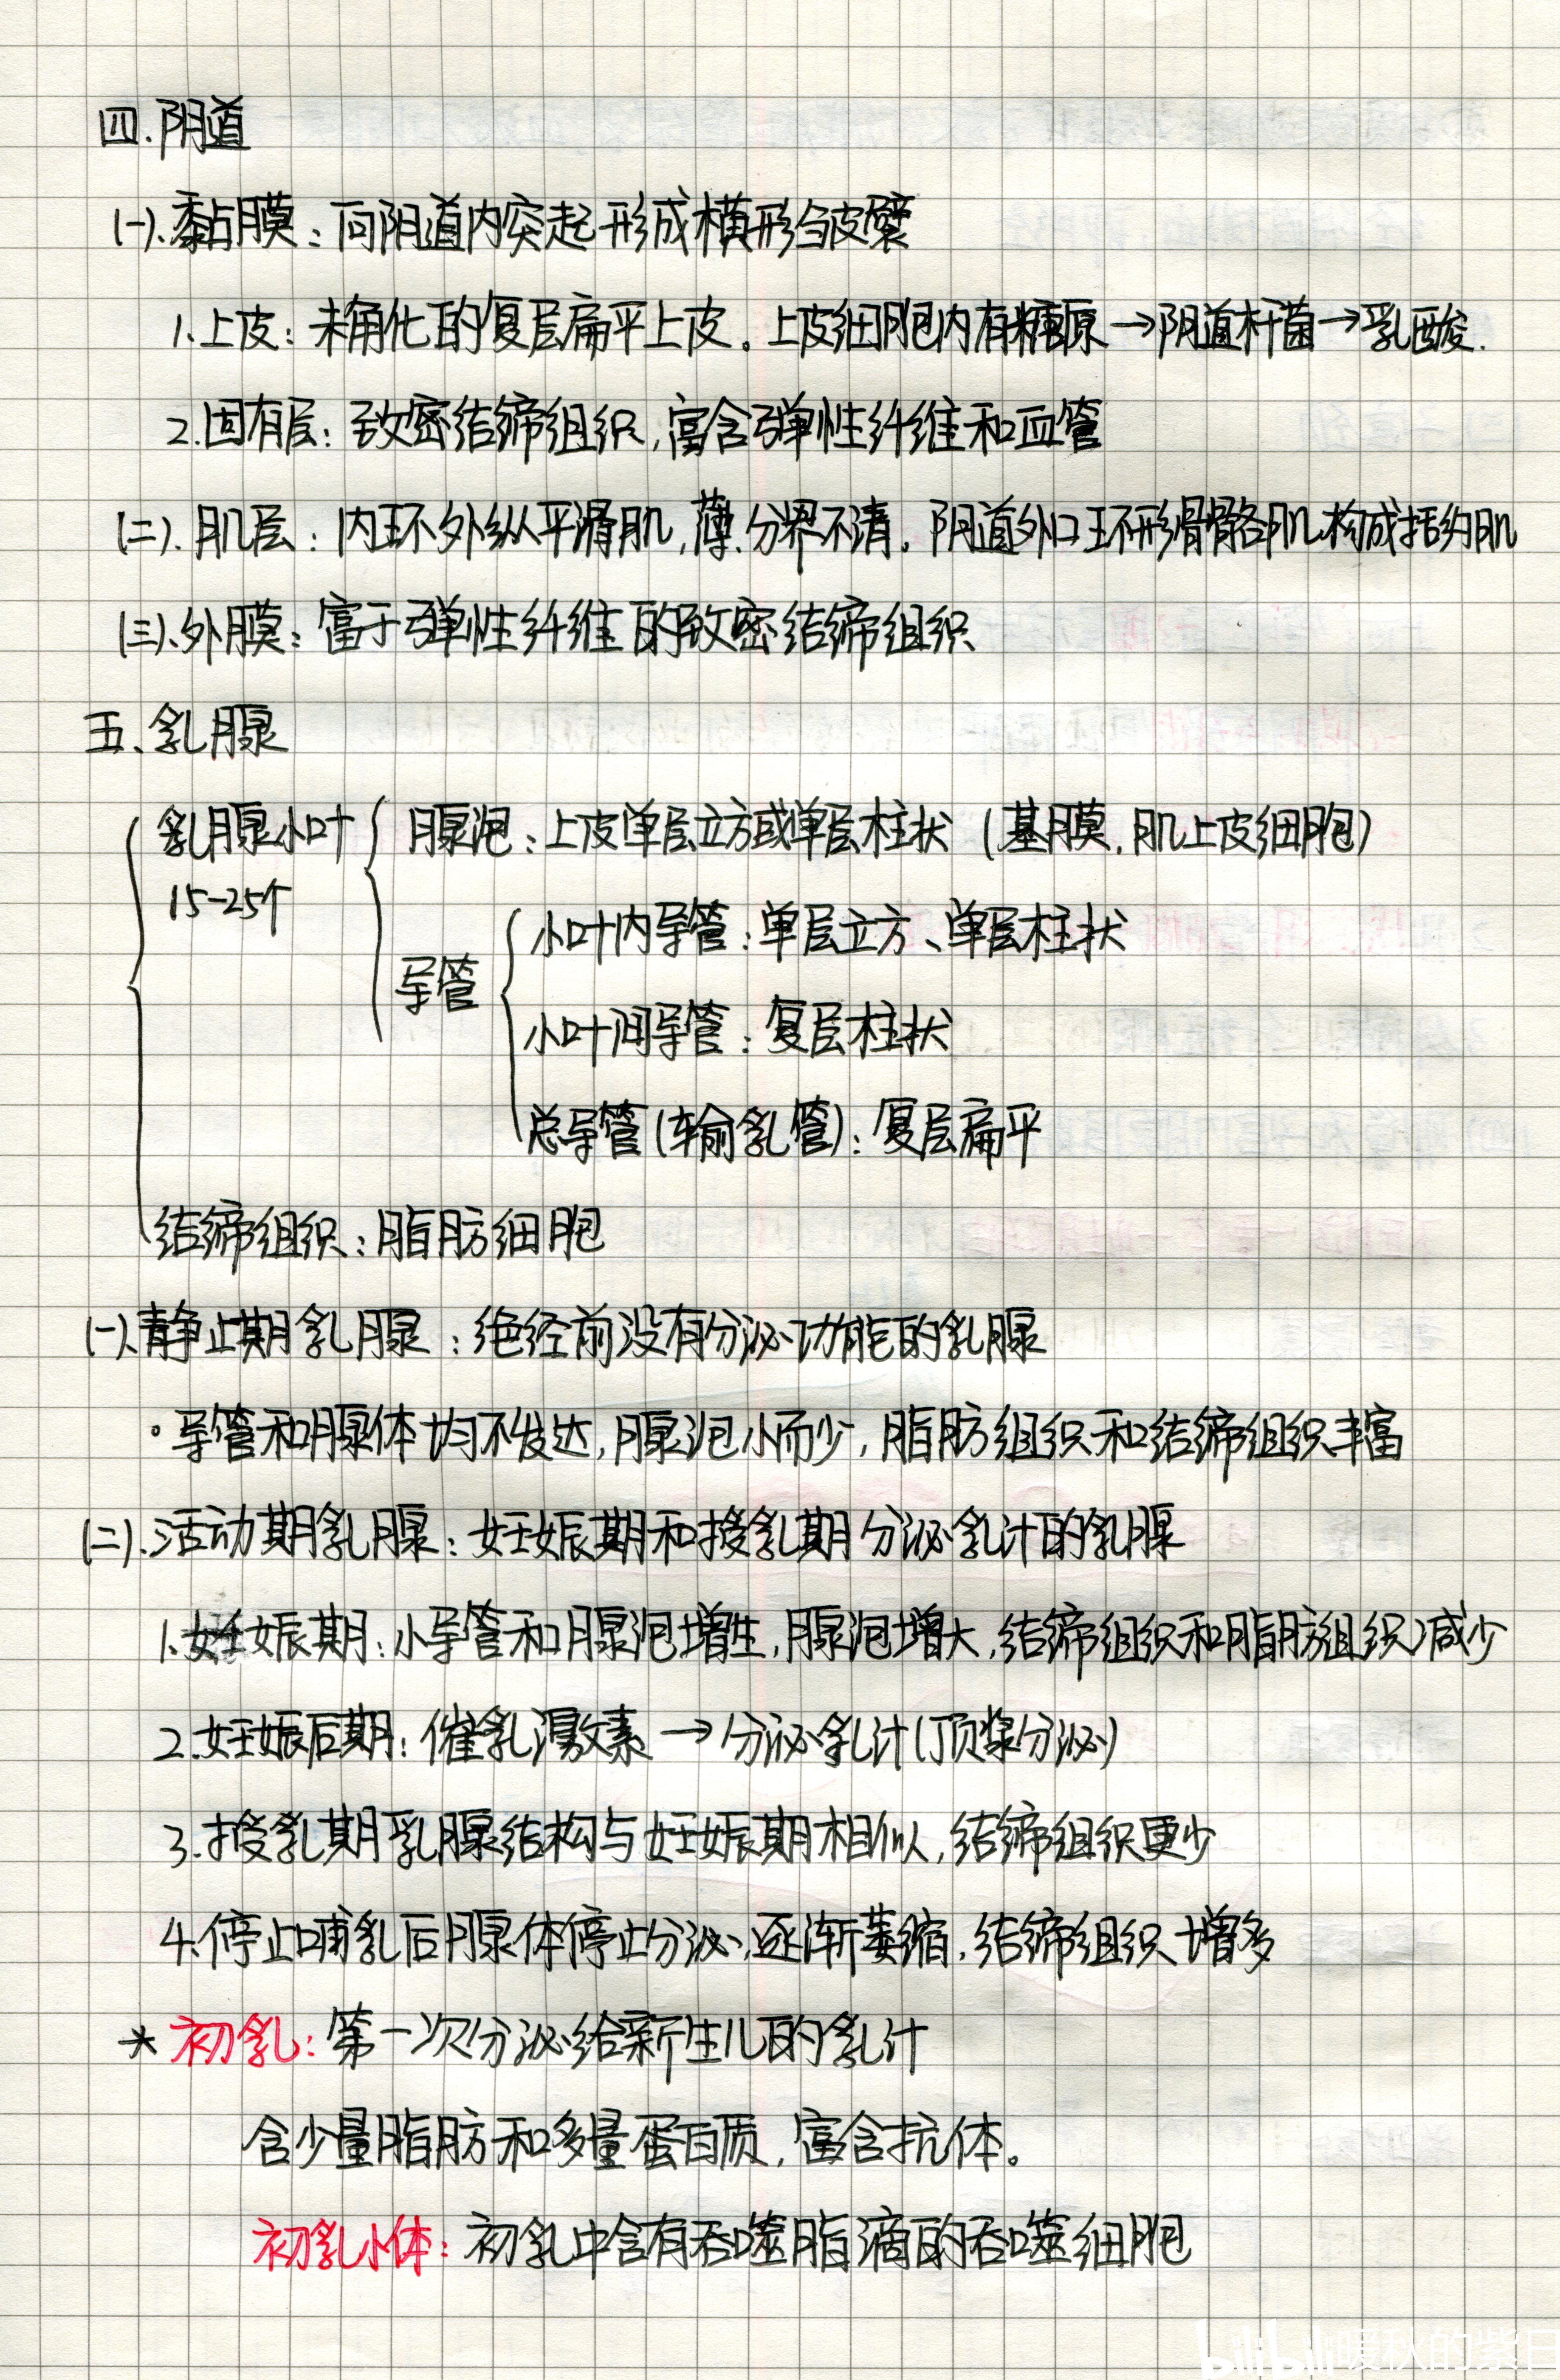 四.阴道
(一).黏膜：向阴道内突起形成横形皱襞
1.上皮：未角化的复层扁平上皮。上皮细胞内有糖原→阴道杆菌→乳酸.
2.固有层：致密结缔组织,富含弹性纤维和血管
(二).肌层：内环外纵平滑肌,薄.分界不清。阴道外口环形骨骼肌构成括约肌
(三).外膜：富于弹性纤维的致密结缔组织
五、乳腺
乳腺小叶 腺泡：上皮单层立方或单层柱状(基膜,肌上皮细胞)
15-25个
小叶内导管：单层立方、单层柱状
导管
小叶间导管：复层柱状
总导管(输乳管)：复层扁平
结缔组织：脂肪细胞
(一).静止期乳腺：绝经前没有分泌功能的乳腺
·导管和腺体均不发达,腺泡小而少,脂肪组织和结缔组织丰富
(二).活动期乳腺：妊娠期和授乳期分泌乳汁的乳腺
1.妊娠期：小导管和腺泡增生,腺泡增大,结缔组织和脂肪组织减少
2.妊娠后期：催乳激素→分泌乳汁(顶浆分泌)
3.授乳期乳腺结构与妊娠期相似,结缔组织更少
4.停止哺乳后腺体停止分泌,逐渐萎缩,结缔组织增多
*初乳：第一次分泌给新生儿的乳汁
含少量脂肪和多量蛋白质,富含抗体。
初乳小体：初乳中含有吞噬脂滴的吞噬细胞
bilibili 暖秋的紫日